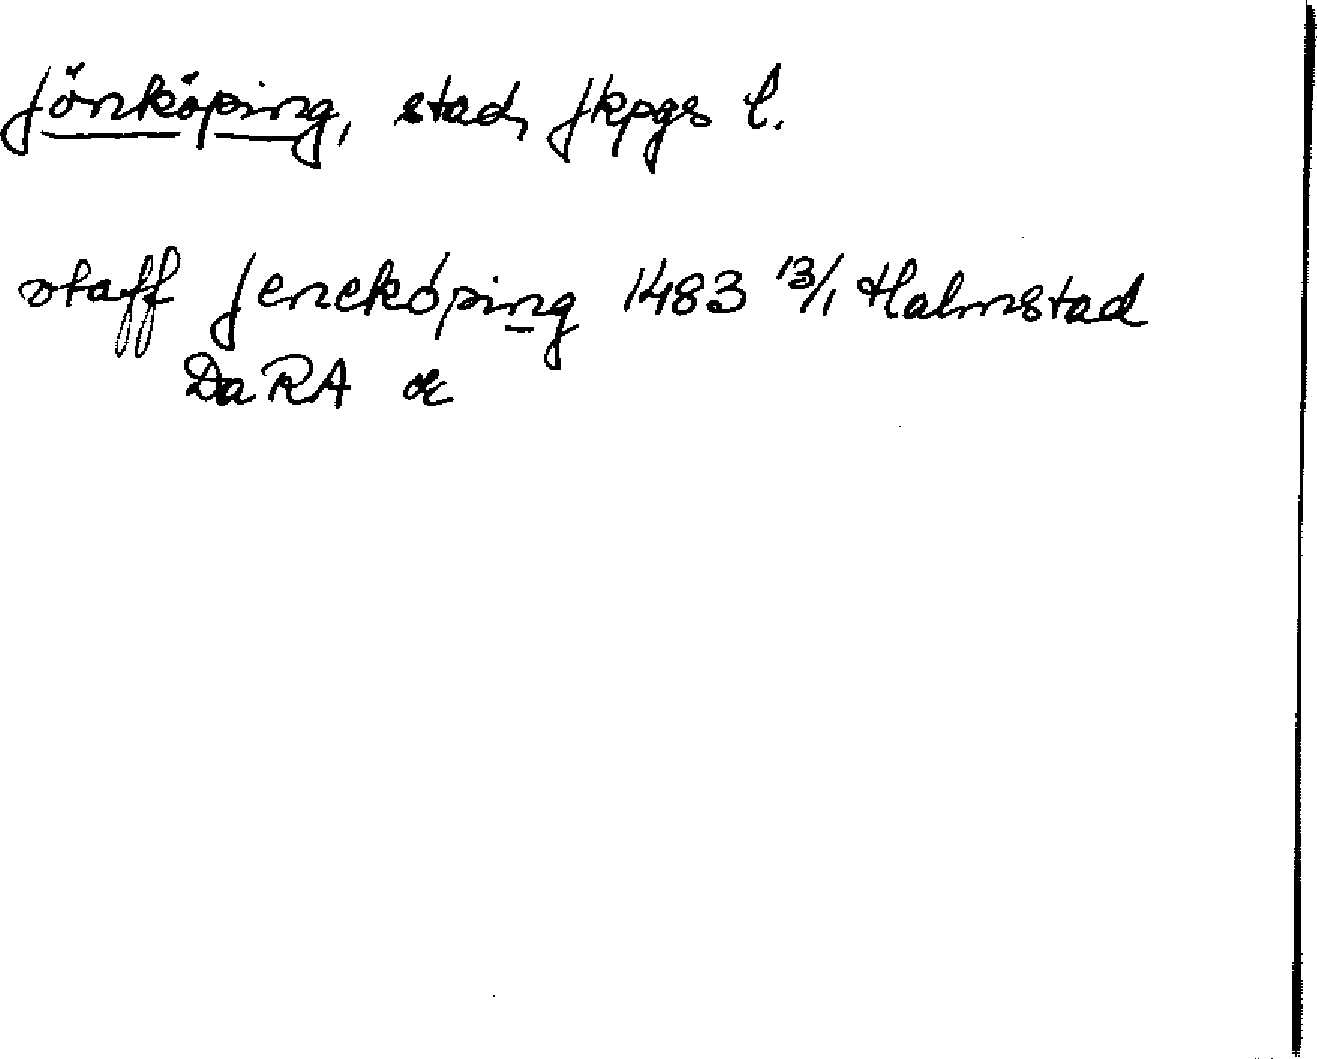 Jönköping, stad, Jkpgs l.
staff Jeneköping 1483 13/1 Halmstad
DaRA or